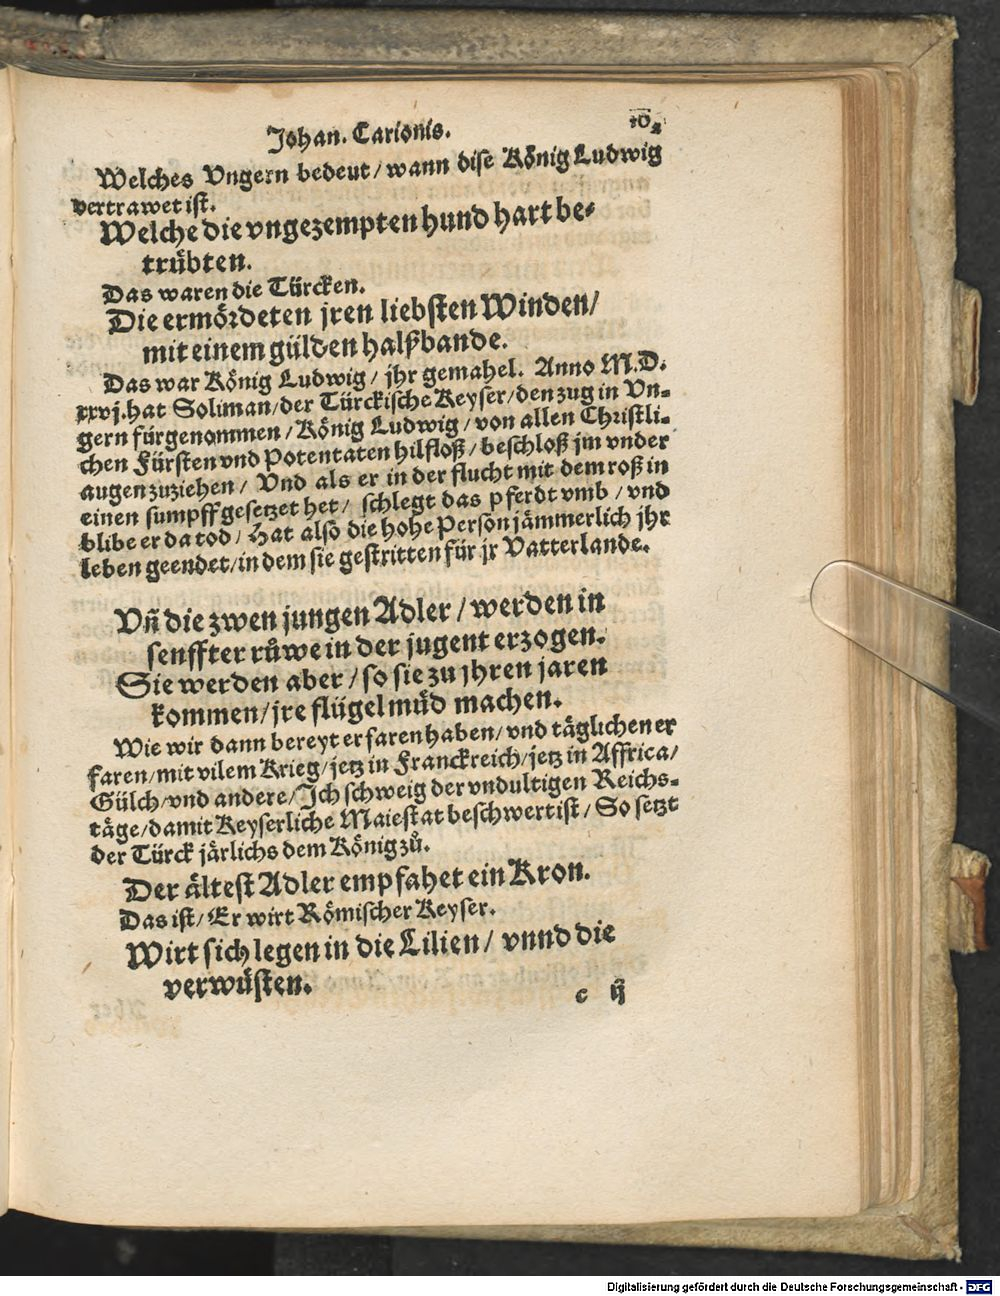 Johan. Carionis.
10.
Welches Vngern bedeut / wann dise König Ludwig
vertrawet ist.
Welche die vngezempten hund hart be-
trübten.
Das waren die Türcken.
Die ermördeten jren liebsten Winden /
mit einem gülden halßbande.
Das war König Ludwig / jhr gemahel. Anno M.D.
xxvj. hat Soliman / der Türckische Keyser / den zug in Vn-
gern fürgenommen / König Ludwig / von allen Christli-
chen Fürsten vnd Potentaten hilfloß / beschloß jm vnder
augen zuziehen / Vnd als er in der flucht mit dem roß in
einen sumpff gesetzet het / schlegt das pferdt vmb / vnd
blibe er da tod / Hat also die hohe Person jämmerlich jhr
leben geendet / in dem sie gestritten für jr Vatterlande.
Vñ die zwen jungen Adler / werden in
senffter růwe in der jugent erzogen.
Sie werden aber / so sie zu jhren jaren
kommen / jre flügel müd machen.
Wie wir dann bereyt erfaren haben / vnd täglichen er
faren / mit vilem Krieg / jetz in Franckreich / jetz in Affrica /
Gülch / vnd andere / Ich schweig der vndultigen Reichs-
täge / damit Keyserliche Maiestat beschwert ist / So setzt
der Türck järlichs dem König zů.
Der ältest Adler empfahet ein Kron.
Das ist / Er wirt Römischer Keyser.
Wirt sich legen in die Lilien / vnnd die
verwüsten.
c ij
Digitalisierung gefördert durch die Deutsche Forschungsgemeinschaft - DFG